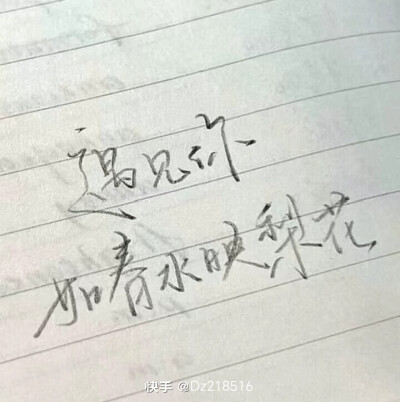 遇见你
如春水映梨花
快手 @Dz218516